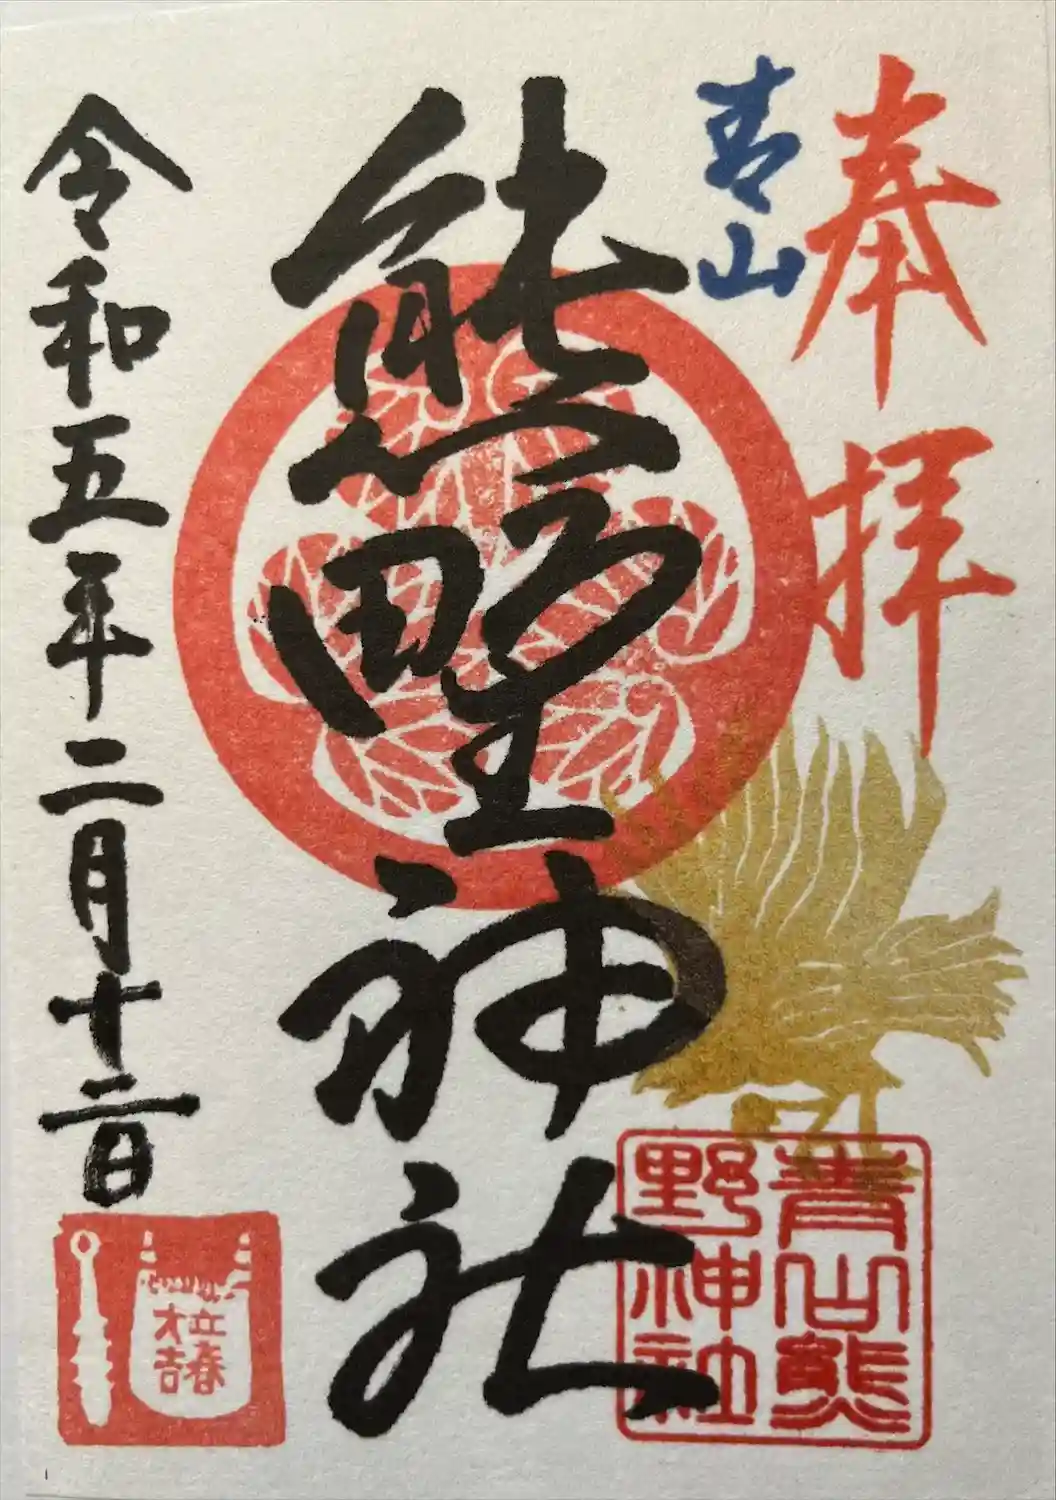 奉拝
青山
熊野神社
令和五年二月十二日
青山熊
野神社
立春
大吉